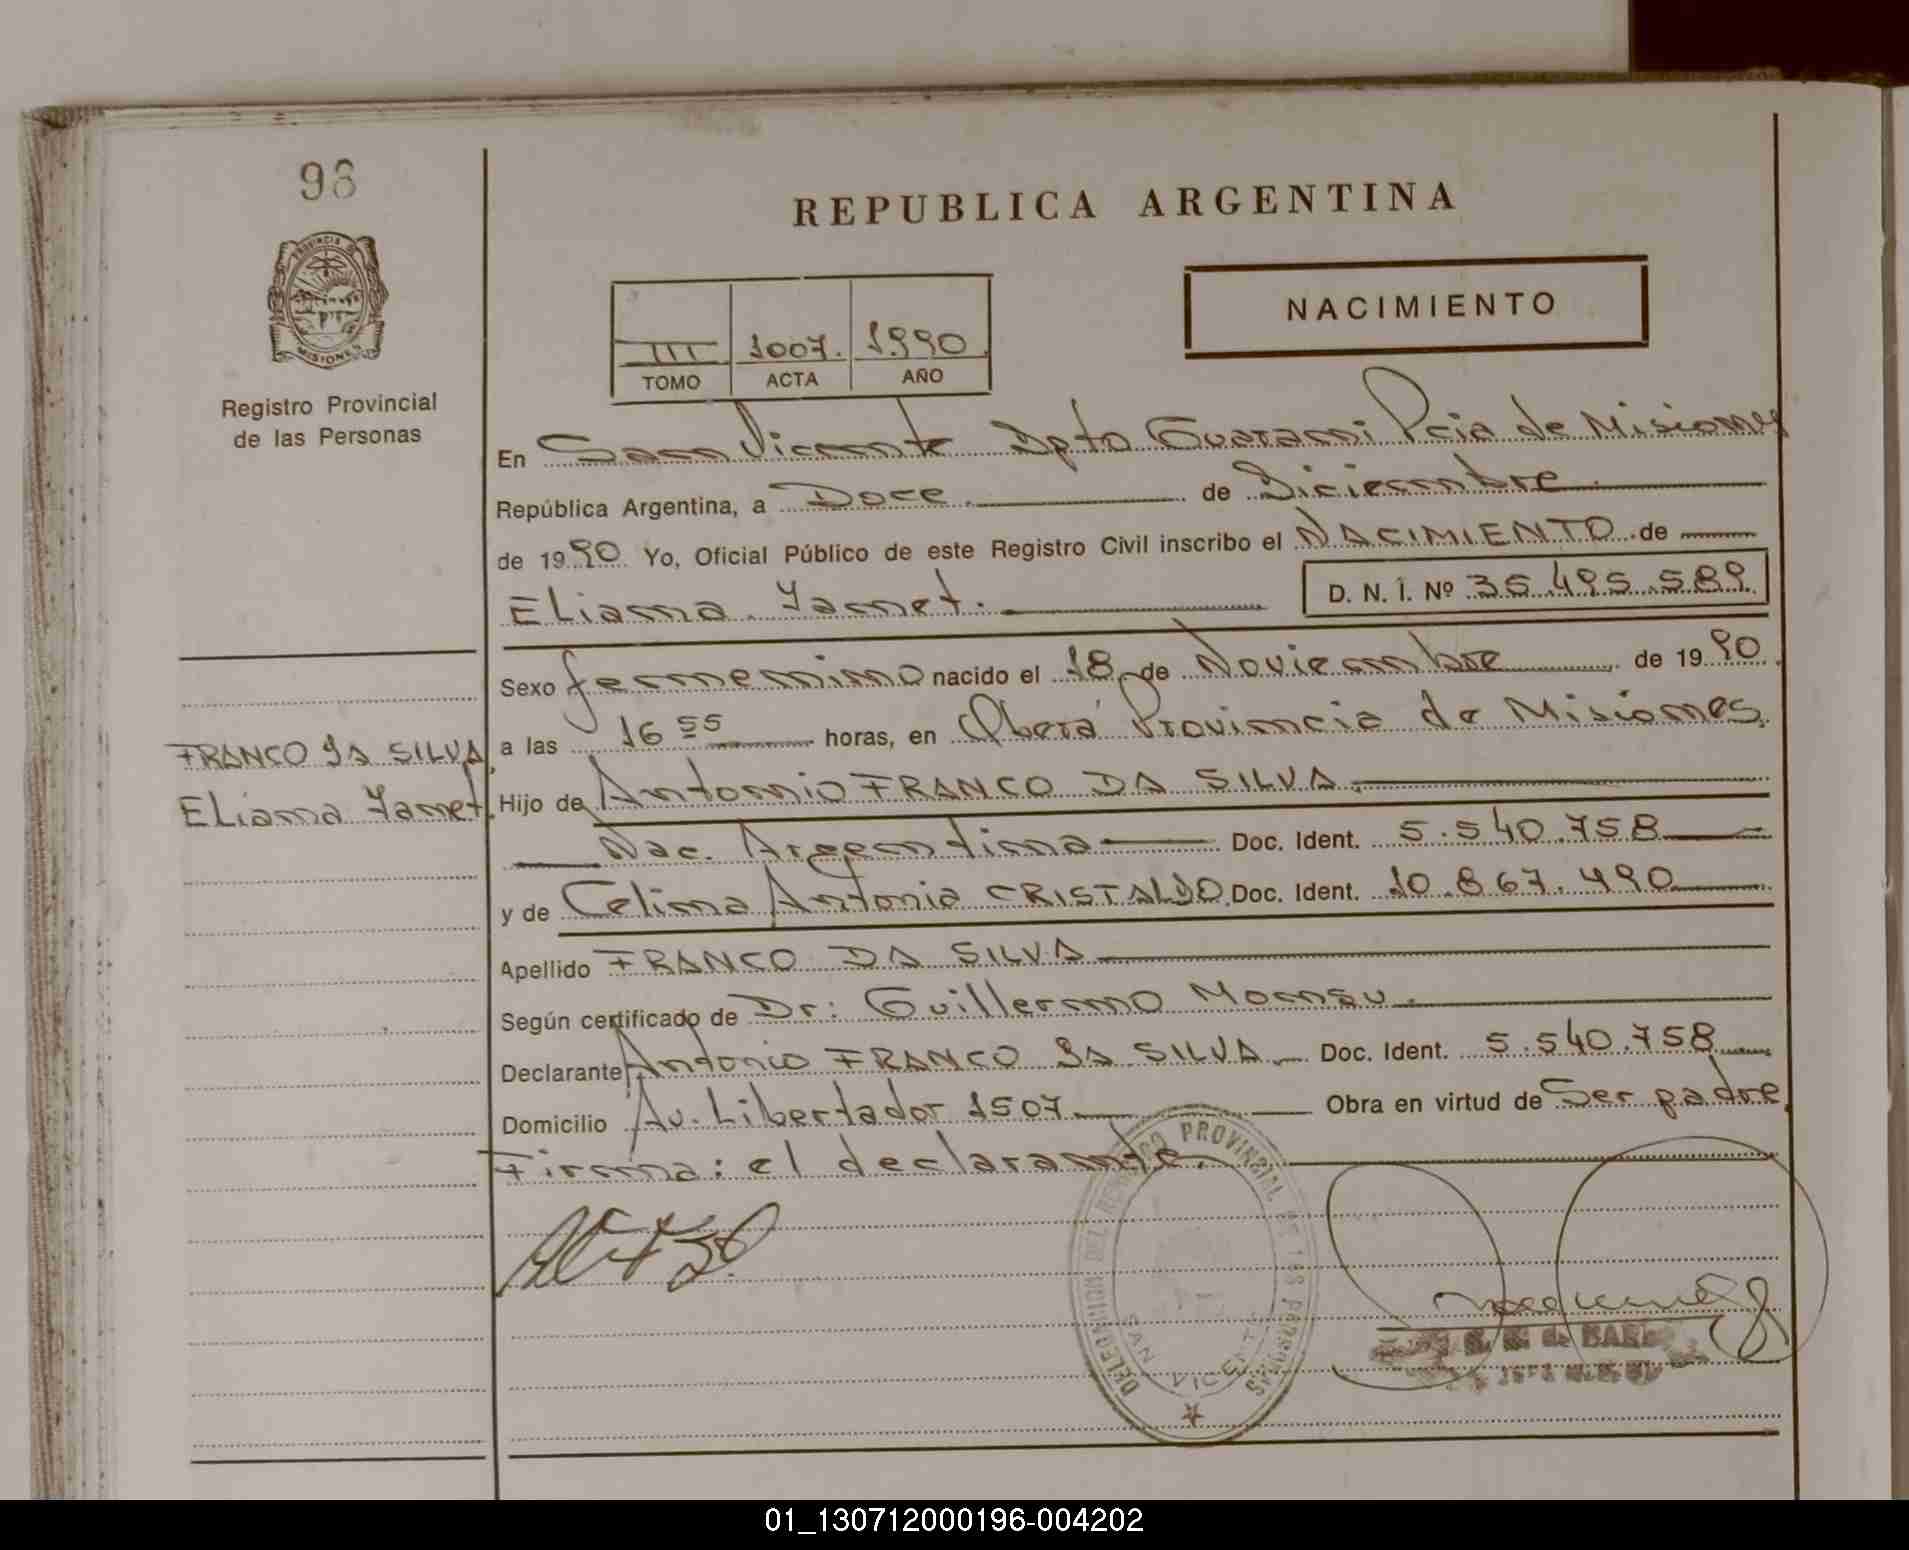 98
PROVINCIA DE
MISIONES
Registro Provincial
de las Personas
FRANCO DA SILVA
Eliana Yanet.
REPUBLICA ARGENTINA
NACIMIENTO
III 1007. 1990
TOMO ACTA AÑO
En San Vicente Dpto Guarani Pcia de Misiones
República Argentina, a Doce. de Diciembre.
de 1990 Yo, Oficial Público de este Registro Civil inscribo el NACIMIENTO de
Eliana Yanet. D. N. I. Nº 35.495.589.
Sexo femenino nacido el 18 de Noviembre de 1990.
a las 16 55 horas, en Oberá Provincia de Misiones.
Hijo de Antonio FRANCO DA SILVA.
Nac. Argentina Doc. Ident. 5.540.758
y de Celina Antonia CRISTALDO Doc. Ident. 10.867.490
Apellido FRANCO DA SILVA
Según certificado de Dr: Guillermo
Declarante Antonio FRANCO DA SILVA Doc. Ident. 5.540.758
Domicilio Av. Libertador 1507 Obra en virtud de Ser padre.
Firma: el declarante.
DELEGACION DEL REGISTRO PROVINCIAL DE LAS PERSONAS
SAN VICENTE
de
01_130712000196-004202